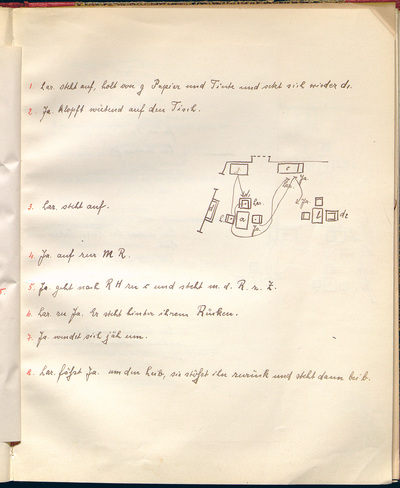 1. Lar. steht auf, holt von g Papier und Tinte und setzt sich wieder d2.
2. Ja. klopft wütend auf den Tisch.
3. Lar. steht auf.
4. Ja. auf zur M R.
5. Ja. geht nach R H zu c und steht m. d. R. z. Z.
6. Lar. zu Ja. Er steht hinter ihrem Rücken.
7. Ja. wendet sich jäh um.
8. Lar. faßt Ja. um den Leib, sie stößt ihn zurück und steht dann bei b.
c
Ja
Ja
Lar.
a
b
d2
Ja